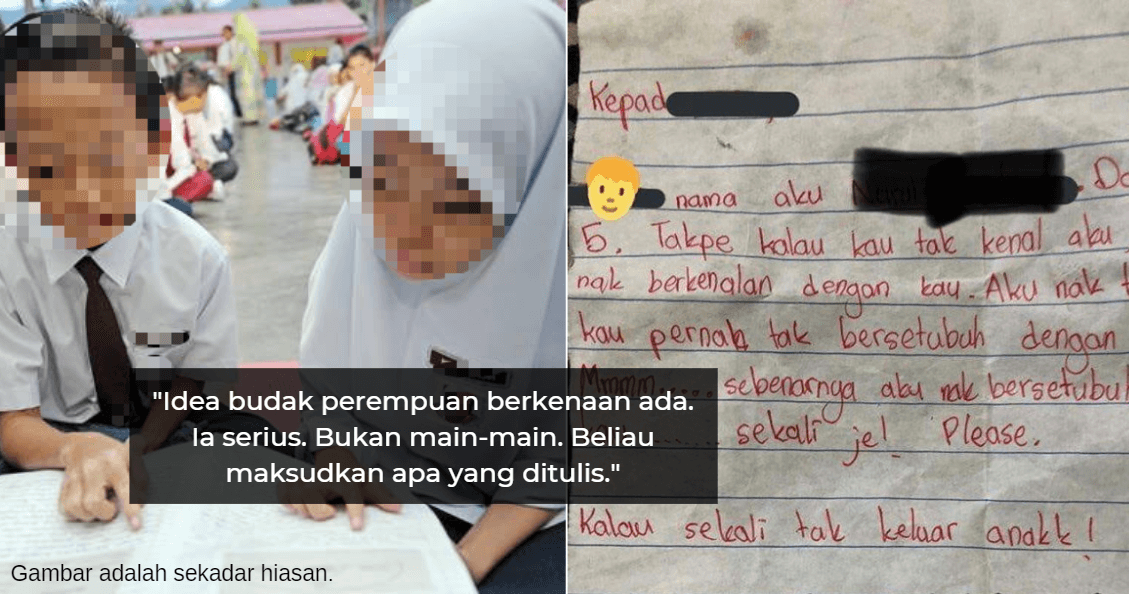 Kepad
nama aku
5. Takpe kalau kau tak kenal aku
nak berkenalan dengan kau. Aku nak
kau pernah tak bersetubuh dengan
Mmmm.... sebenarnya aku nak
sekali je! Please.
Kalau sekali tak keluar anakk!
"Idea budak perempuan berkenaan ada.
Ia serius. Bukan main-main. Beliau
maksudkan apa yang ditulis."
Gambar adalah sekadar hiasan.